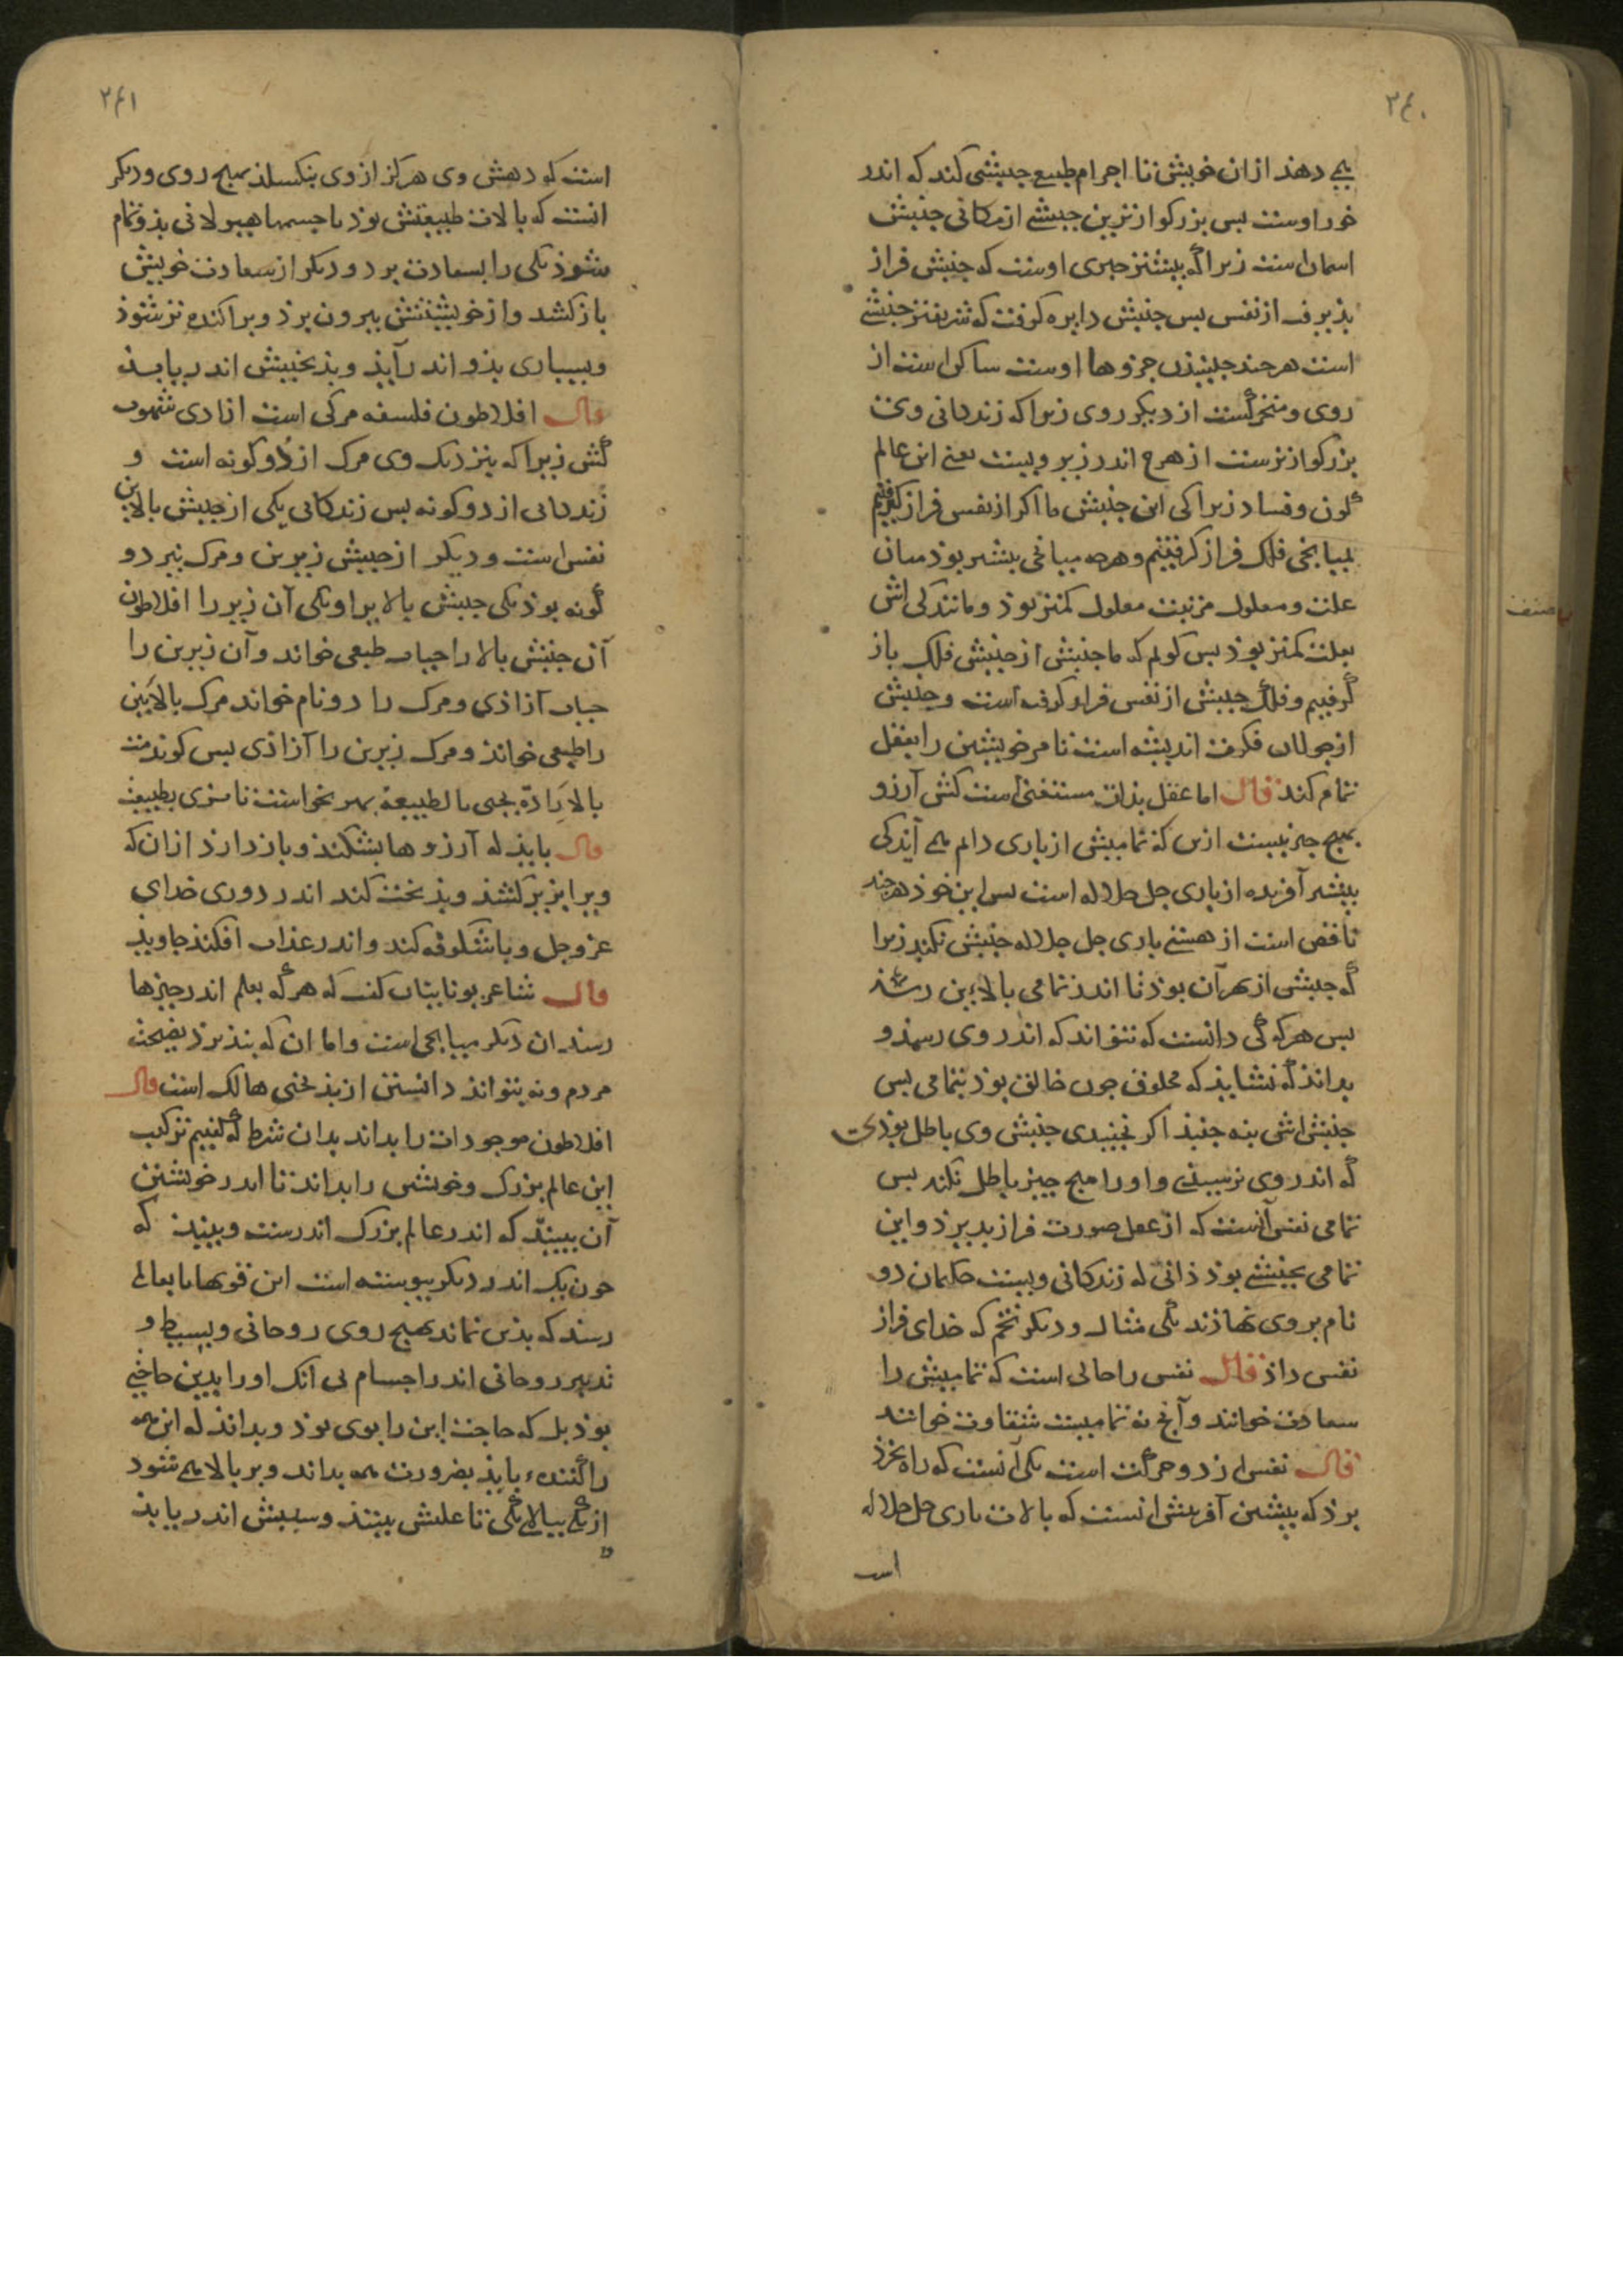 ۲۶۰
همی دهذ از ان خویش تا اجرام طبیع جنبشی کند که اندر
خور اوست بس بزرکوارترین جنبشی از مکانی جنبش
اسمان است زیرا که بیشتر جیزی اوست که جنبش فراز
بذیرف از نفس بس جنبش دایره کرفت که شریفتر جنبشی
است هر جند جنبیذن جزوها اوست ساکن است از
روی و متحرکست از دیکر روی زیرا که زندکانی وی
بزرکوارترست از هرج اندر زیر ویست یعنی این عالم
کون و فساد زیرا کی این جنبش ما اکر از نفس فراز کیریم
بمیانجی فلک فراز کرفتیم و هرجه میانجی بیشتر بوذ میان
علت و معلول مرتبت معلول کمتر بوذ و مانندکی اش
بعلت کمتر بوذ بس کویم که ما جنبش از جنبش فلک باز
کرفتیم و فلک جنبش از نفس فراز کرفته است و جنبش
از جولان فکرت اندیشه است تا مر خویشتن را بعقل
تمام کند قال اما عقل بذات مستغنی است کش آرزو
بهیج جیز نیست ازین که تمامیش از باری دایم همی آیذ کی
بیشتر آفریده از باری جل جلاله است بس این خوذ هرجند
ناقص است از هستی باری جل جلاله جنبش نکند زیرا
که جنبش از بهر آن بوذ تا اندر تمامی بالایین رسذ
بس هرکه کی دانست که نتواند که اندر وی رسد و
بداند که نشایذ که مخلوق جون خالق بوذ بتمامی بس
جنبش اش بنه جنبذ اکر بجنبیدی جنبش وی باطل بوذی
که اندر وی نرسیدی و او را هیج جیز باطل نکند بس
تمامی نفس آنست که از عقل صورت فراز بدیرذ و این
تمامی بجنبشی بوذ ذاتی که زندکانی ویست حکیمان دو
نام بر وی نهاذند یکی مثال و دیکر تخم که خدای فراز
نفس داذ قال نفس را حالی است که تمامیش را
سعادت خوانند و آنج نه تمامیست شقاوت خوانند
قال نفس را ز دو حرکت است یکی آنست که راه بخرذ
برذ که بیشین آفرینش انست که بالات باری جل جلاله
است
۲۶۱
است که دهش وی هرکز از وی بنکسلذ بهیج روی و دیکر
انست که بالات طبیعتش بوذ با جسمها هیولانی بذو تمام
شوذ یکی را بسعادت برد و دیکر از سعادت خویش
باز کشد و از خویشتنش بیرون برذ و براکنده تر شوذ
و بسیاری بذو اندر آیذ و بذبختیش اندر یابذ
قال افلاطون فلسفه مرکی است ازادی شهوت
کش زیرا که بنزدیک وی مرک از دو کونه است و
زندکانی از دو کونه بس زندکانی یکی از جنبش بالایین
نفس است و دیکر از جنبش زیرین و مرک نیز دو
کونه بوذ یکی جنبش بالا یرا و یکی آن زیر را افلاطون
آن جنبش بالا را حیات طبعی خواند و آن زیرین را
حیات آزاذی و مرک را دو نام خواند مرک بالایین
را طبعی خواند و مرک زیرین را آزاذی بس کوید مت
بالارادة تحیی بالطبیعة بمیر بخواست تا بزی بطبیعت
قال بایذ که آرزوها بشکند و باز دارذ از ان که
ویرا بزیر کشذ و بذبخت کند اندر دوری خدای
عز و جل و باشکوفه کند و اندر عذاب افکند جاویذ
قال شاعر یونانیان کفت که هرکه بعلم اندر جیزها
رسد ان دیکر میانجی است و اما ان که بنذیرذ نصیحت
مردم و نه بتواند دانستن از بذبختی هالک است قال
افلاطون موجودات را بداند بدان شرط که کفتیم ترکیب
این عالم بزرک و خویشتن را بداند تا اندر خویشتن
آن بیند که اندر عالم بزرک اندرست و ببیند که
جون یک اندر دیکر بیوسته است این قوتها تا بعالمی
رسد که بذین نماند بهیج روی روحانی و بسیط و
تدبیر روحانی اندر اجسام بی آنک او را بدین حاجتی
بوذ بل که حاجت این را بوی بوذ و بداند که این همه
را کننده بایذ بضرورت همه بداند و بر بالا همی شود
از یکی ببالای یکی تا علتش بیند و سببش اندر یابذ